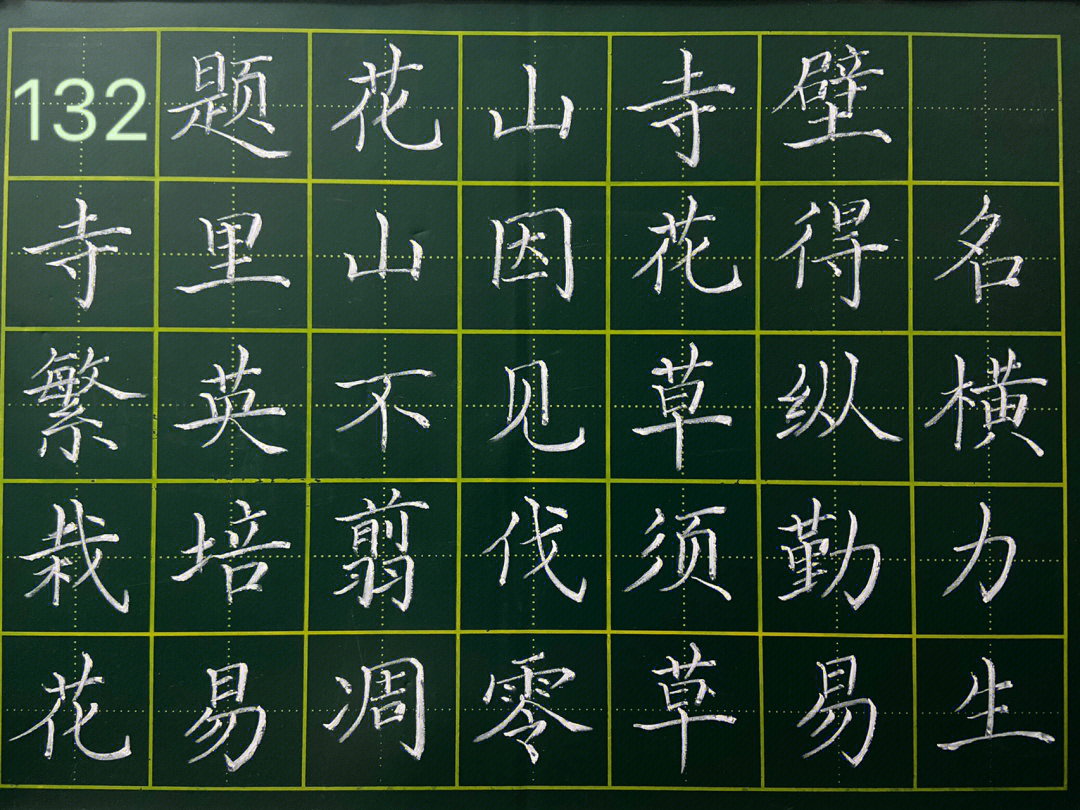 132题花山寺壁
寺里山因花得名
繁英不见草纵横
栽培翦伐须勤力
花易凋零草易生